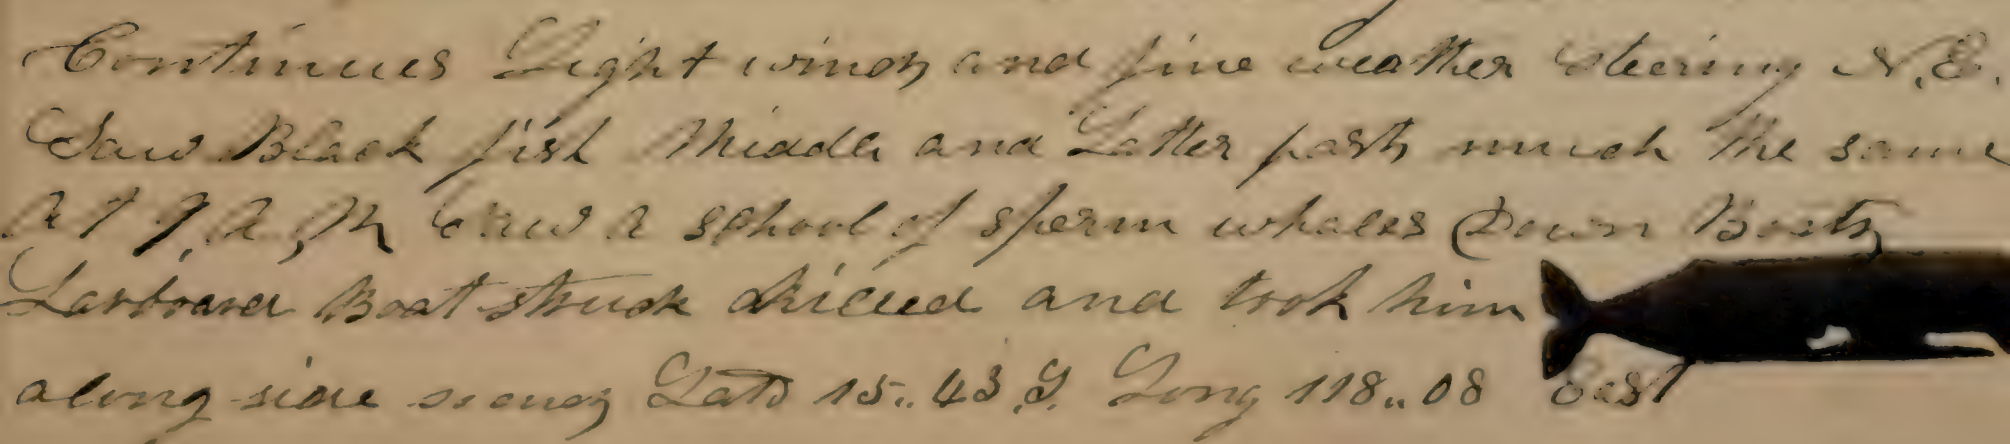 Continues Light winds and fine weather Steering N.E.
Saw Black fish Middle and Latter parts much the same
At 7, A, M Saw a school of sperm whales Down Boats
Larboard Boat struck killed and took him
along side so ends Latd 15.. 43, S. Long 118.. 08 East